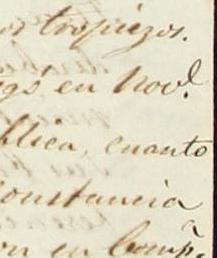 os tropiezos.
en Nov.l
blica, cuanto
constancia
on en Comp.a